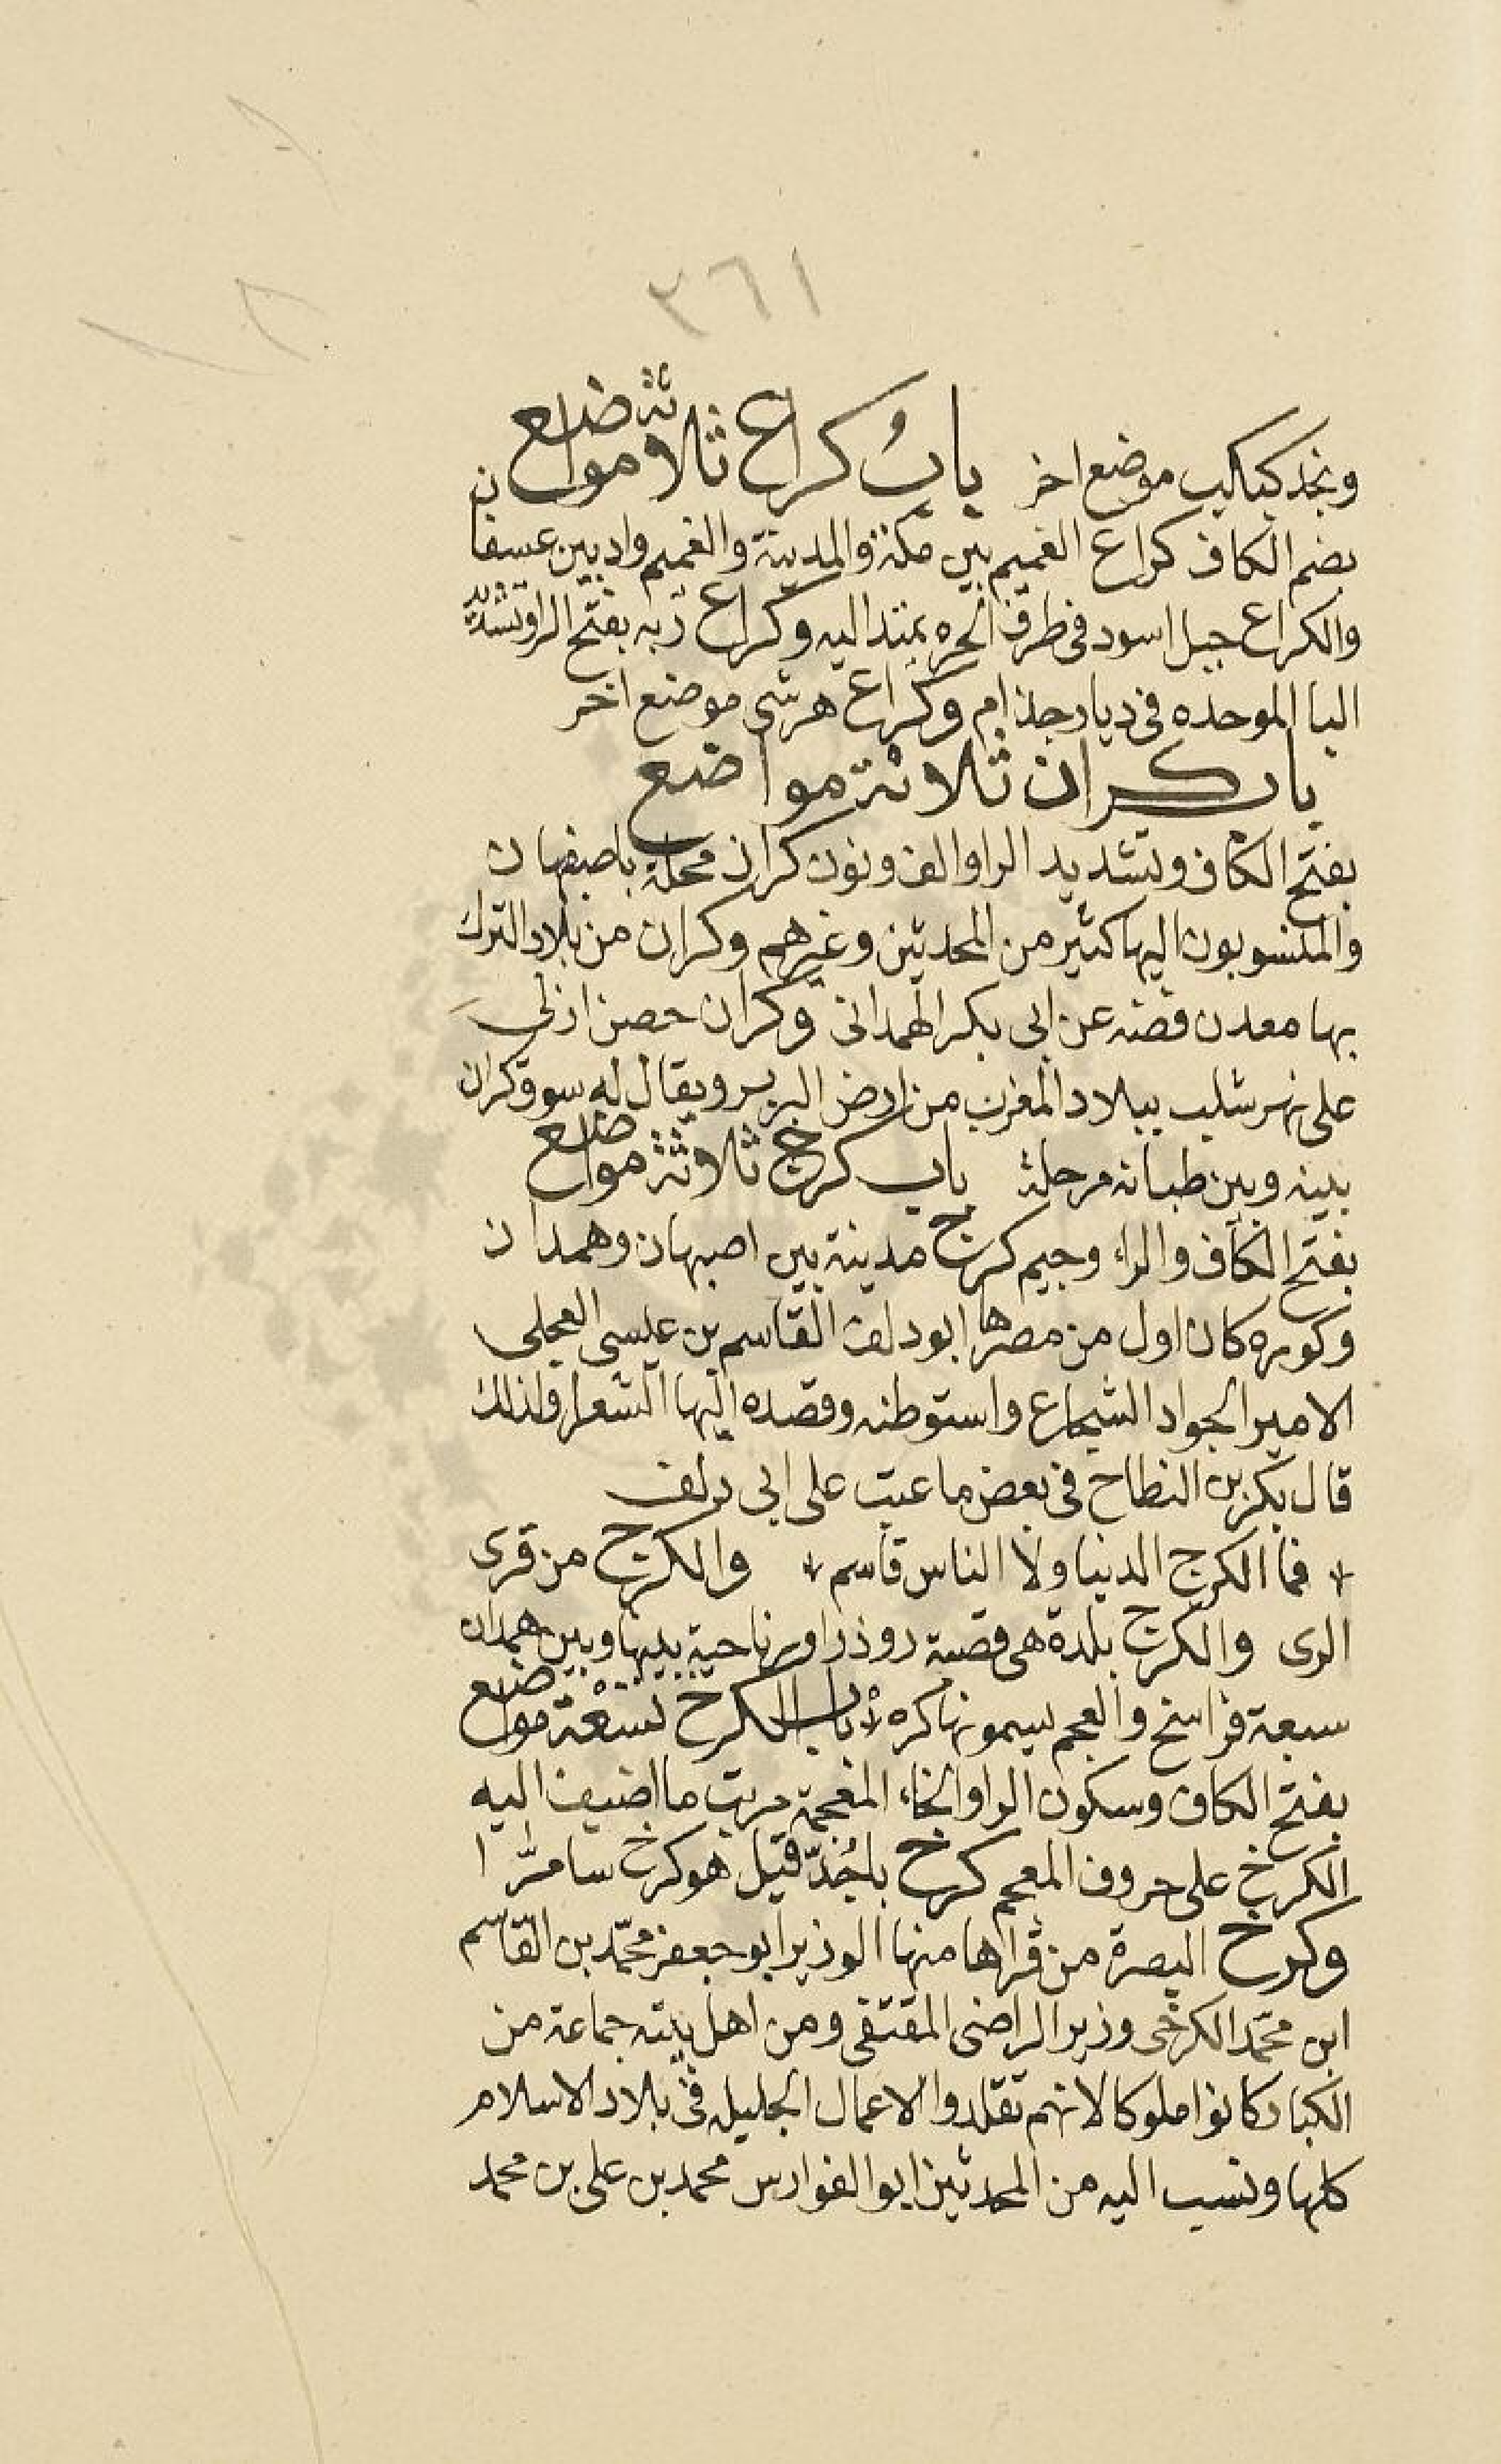 ٣٦١
ونجد كبكب موضع اخر باب كراع ثلاثة مواضع
بضم الكاف كراع الغميم بين مكة والمدينة والغميم واد بين عسفان
والكراع جبل اسود فى طرف الحره يمتد اليه وكراع ربه بفتح الرا وتشديد
البا الموحده فى ديار جذام وكراع هرشى موضع اخر
باب كران ثلاثة مواضع
بفتح الكاف وتشديد الرا والف ونون كران محلة باصبهان
والمنسوبون اليها كثير من المحدثين وغيرهم وكران من بلاد الترك
بها معدن فضه عن ابى بكر الهمدانى وكران حصن ازلى
على نهر شلب ببلاد المغرب من ارض البربر ويقال له سوق كران
بينه وبين طبانه مرحلة باب كرج ثلاثة مواضع
بفتح الكاف والراء وجيم كرج مدينة بين اصبهان وهمدان
وكوره كان اول من مصرها ابو دلف القاسم بن عيسى العجلى
الامير الجواد الشجاع واستوطنه وقصده اليها الشعرا ولذلك
قال بكر بن النطاح فى بعض ما عتب على ابى دلف
فما الكرج الدنيا ولا الناس قاسم والكرج من قرى
الرى والكرج بلدة هى قصبة روذراور ناحية بينها وبين همدان
سبعة فراسخ والعجم يسمونها كره باب الكرخ تسعة مواضع
بفتح الكاف وسكون الرا والخاء المعجمة مرتب ما اضيف اليه
الكرخ على حروف المعجم كرخ باجُدّا قيل هو كرخ سامرّا
وكرخ البصرة من قراها منها الوزير ابو جعفر محمّد بن القاسم
ابن محمّد الكرخى وزير الراضى المقتفى ومن اهل بيته جماعة من
الكبار كانوا ملوكا لانهم تقلدوا الاعمال الجليله فى بلاد الاسلام
كلها ونسب اليه من المحدثين ابو الفوارس محمد بن على بن محمد